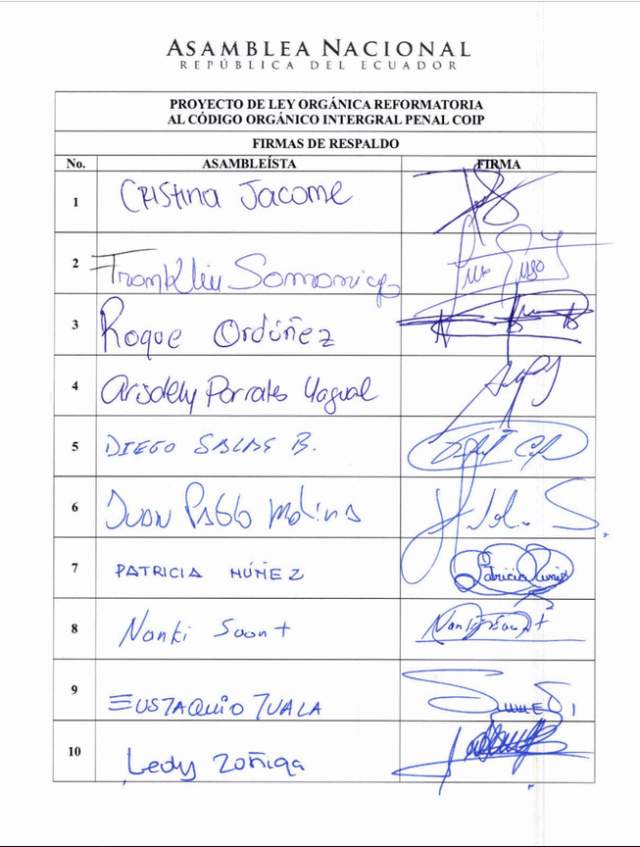 ASAMBLEA NACIONAL
REPÚBLICA DEL ECUADOR
PROYECTO DE LEY ORGÁNICA REFORMATORIA
AL CÓDIGO ORGÁNICO INTERGRAL PENAL COIP
FIRMAS DE RESPALDO
No. ASAMBLEÍSTA FIRMA
1 CRISTINA JACOME
2 Franklin Samaniego
3 Roque Ordóñez
4 Arisdely Parrales Yagual
5 DIEGO SALAS B.
6 JUAN PABLO MOLINA
7 PATRICIA NÚÑEZ Patricia Núñez
8 Nanki Saant Nanki Saant
9 EUSTAQUIO TUALA
10 Ledy Zúñiga